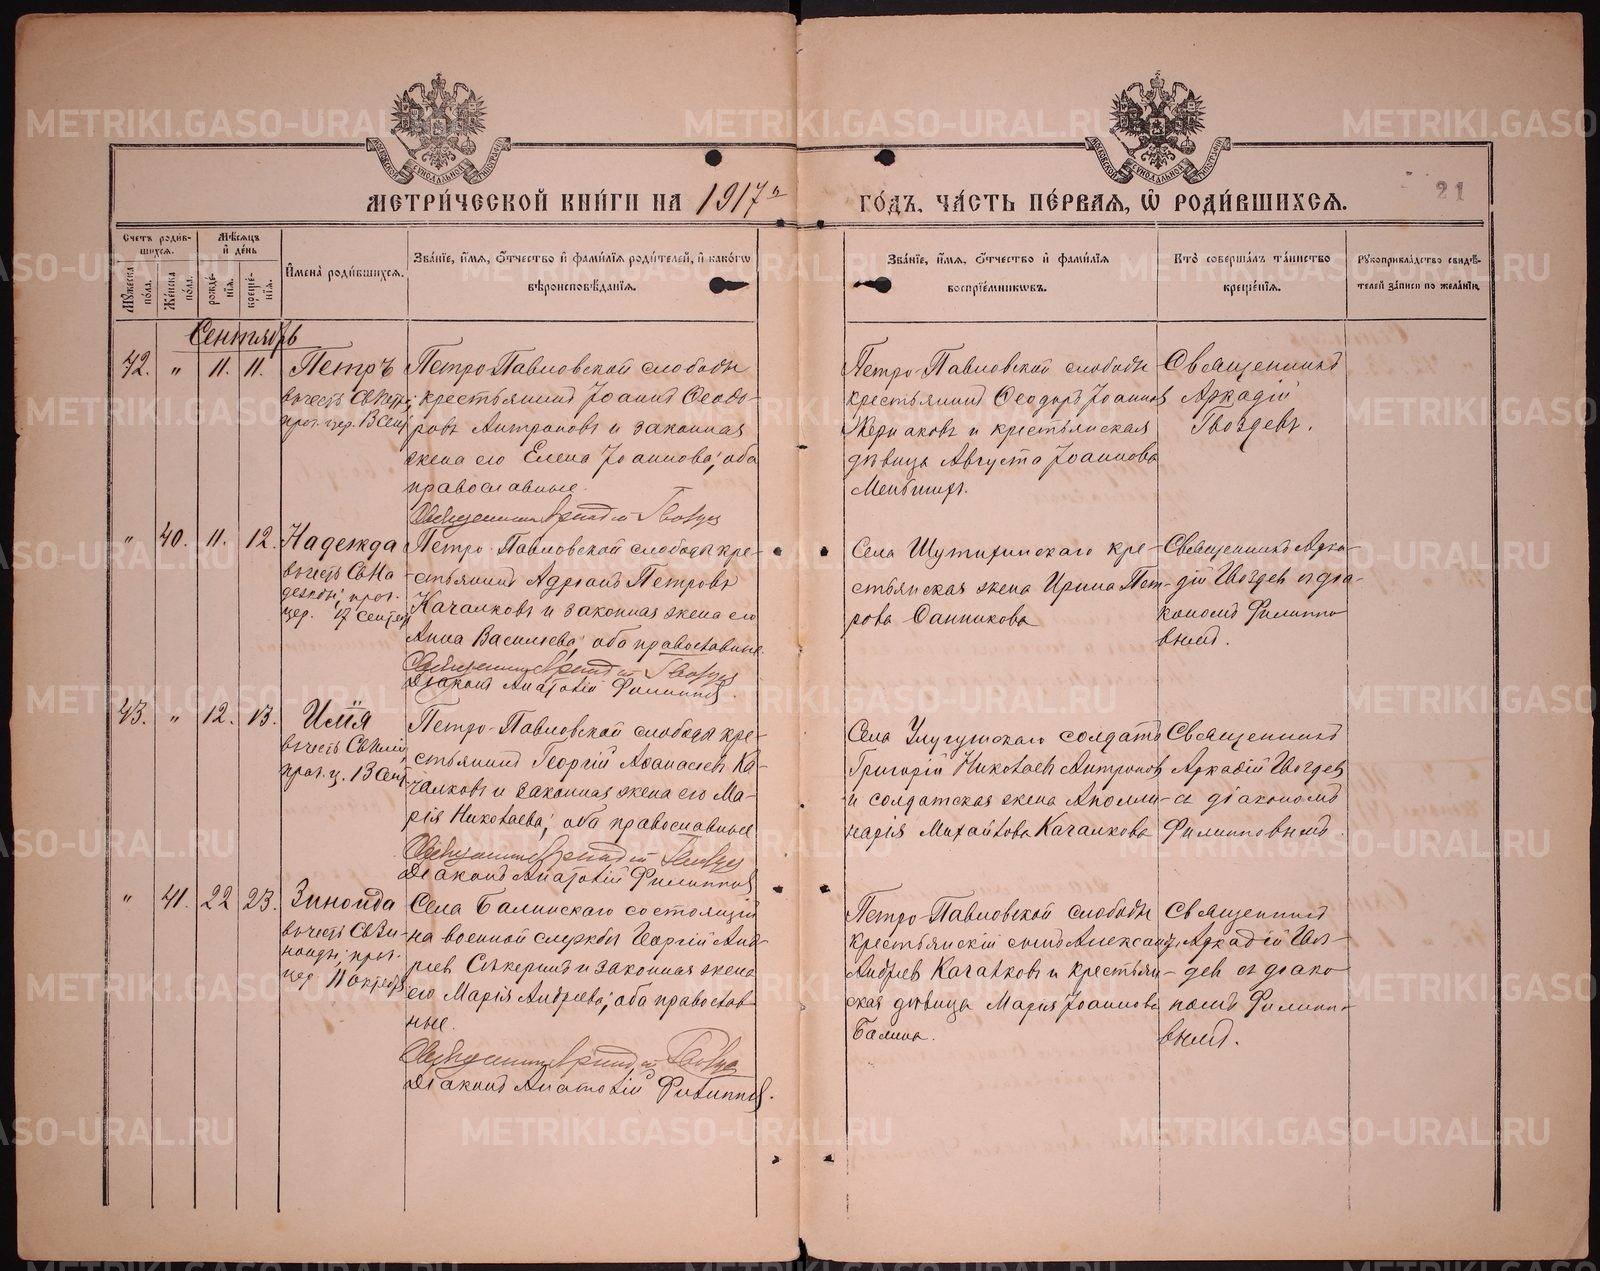 МЕТРИ́ЧЕСКОЙ КНИ́ГИ НА 1917й
ГО́ДЪ, ЧА́СТЬ ПЕ́РВАЯ, Ѡ РОДИ́ВШИХСЯ.
21
Счетъ роди́вшихся.
Мꙋжеска по́ла.
Же́нска по́ла.
Мѣ́сяцъ и де́нь
рожде́нїя.
креще́нїя.
Имена̀ роди́вшихся.
Зва́нїе, и́мя, о́тчество и фами́лїя роди́телей, и како́гѡ
вѣроисповѣ́данїя.
Зва́нїе, и́мя, о́тчество и фами́лїя
воспрїе́мникѡвъ.
Кто̀ соверша́лъ та́инство
креще́нїя.
Рꙋкоприкла́дство свидѣ́-
телей за́писи по жела́нїю.
Сентябрь
42. " 11. 11. Петръ
въ честь Св. Петра;
праз. цер. 13 Сент.
Петро-Павловской слободы
крестьянинъ Іоаннъ Ѳеодо-
ровъ Антроповъ и законная
жена его Елена Іоаннова; оба
православные.
Священникъ Аркадій Гвоздев
Петро-Павловской слободы
крестьянинъ Ѳеодоръ Іоаннов
и крестьянская
дѣвица Августа Іоаннова
Священникъ
Аркадій
Гвоздевъ.
" 40. 11. 12. Надежда
въ честь Св. На
дежды; праз.
цер. 17 Сентября
Петро-Павловской слободы кре-
стьянинъ Адріанъ Петровъ
Качалковъ и законная жена его
Анна Васильева; оба православные.
Священникъ Аркадій Гвоздев
Діаконъ Анатолій Филиппов.
Села Шутихинскаго кре-
стьянская жена Ирина Пет-
рова Санникова
Священникъ Арка-
дій Гвоздев съ діа-
кономъ Филиппо
вымъ.
43. " 12. 13. Илія
въ честь Св. Иліи,
праз. ц. 13 Сент.
Петро-Павловской слободы кре-
стьянинъ Георгій Аѳанасіев Ка-
чалковъ и законная жена его Ма-
рія Николаева; оба православные
Священникъ Аркадій Гвоздев
Діаконъ Анатолій Филиппов
Села солдатъ
Григорій Николаевъ Антропов
и солдатская жена Аполли-
нарія Михайлова Качалкова
Священникъ
Аркадій Гвоздев
съ діакономъ
Филипповымъ.
" 41. 22 23. Зинаида
въ честь Св. Зи-
наиды; праз.
цер. 11 октября
Села Балинскаго состоящій
на военной службѣ Георгій Анд-
реев Сѣкеринъ и законная жена
его Марія Андреева; оба православ-
ные.
Священникъ Аркадій Гвоздев
Діаконъ Анатолій Филиппов.
Петро-Павловской слободы
крестьянскій сынъ Александръ
Андреев Качалковъ и крестьян-
ская дѣвица Марія Іоаннова
Балина.
Священникъ
Аркадій Гвоз-
дев съ діако-
номъ Филиппо-
вымъ.
METRIKI.GASO-URAL.RU